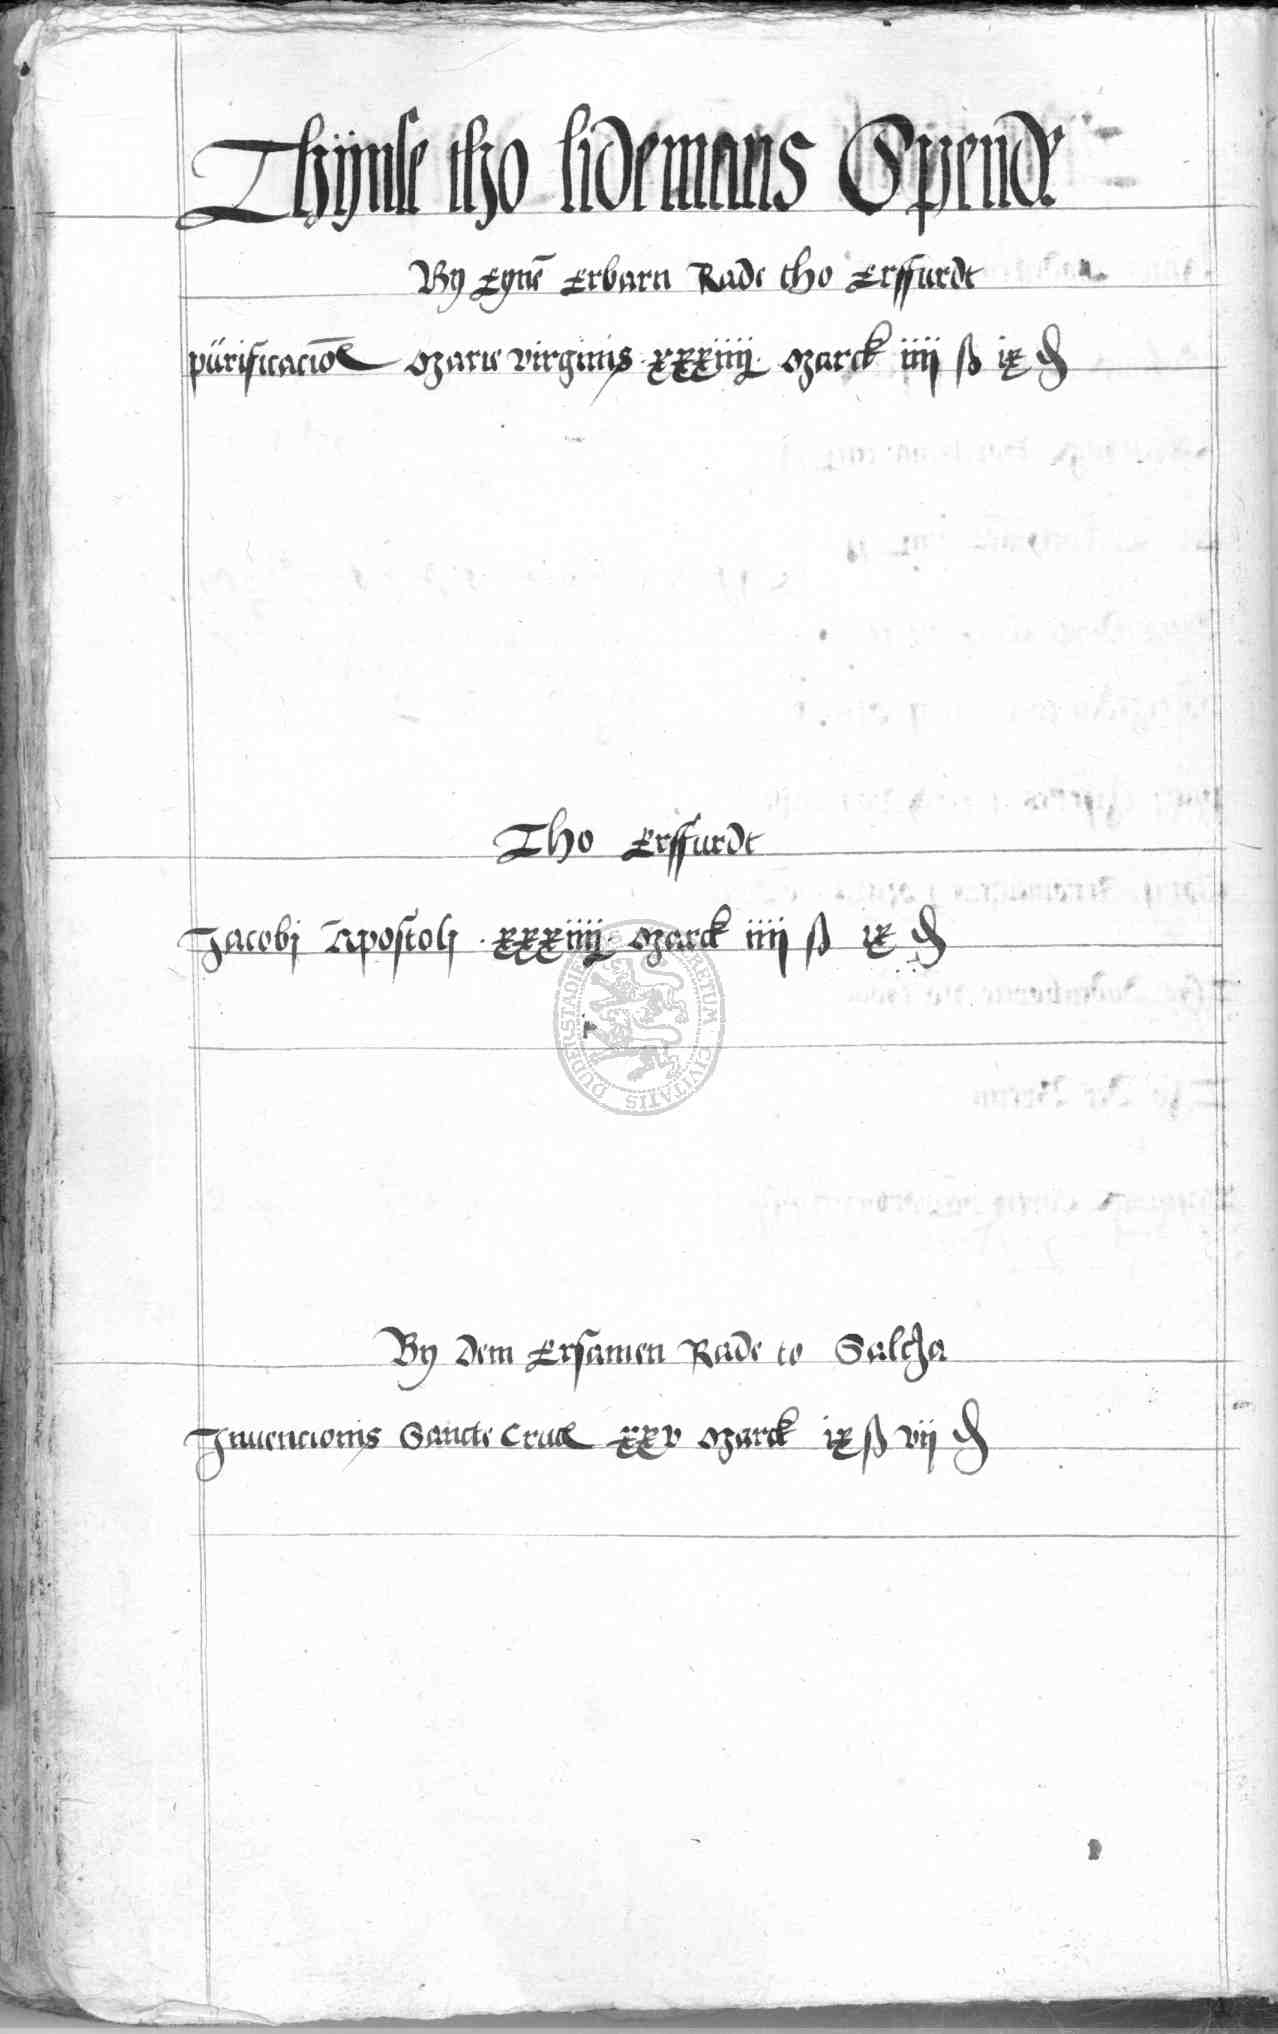 Thÿnse tho lidemans Spende
By Eynē Erbarn Rade tho Erffurdt
pürificacio͞s Marie virginis · xxxiiij · Marck iiij ß ix ₰
Tho Erffurdt
Jacobi Apostoli · xxxiiij · Marck iiij ß ix ₰
By dem Ersamen Rade to Saltza
Jnuencionis Sancte Crucis xxv Marck ix ß vij ₰
SECRETUM CIVITATIS DUDERSTADIS